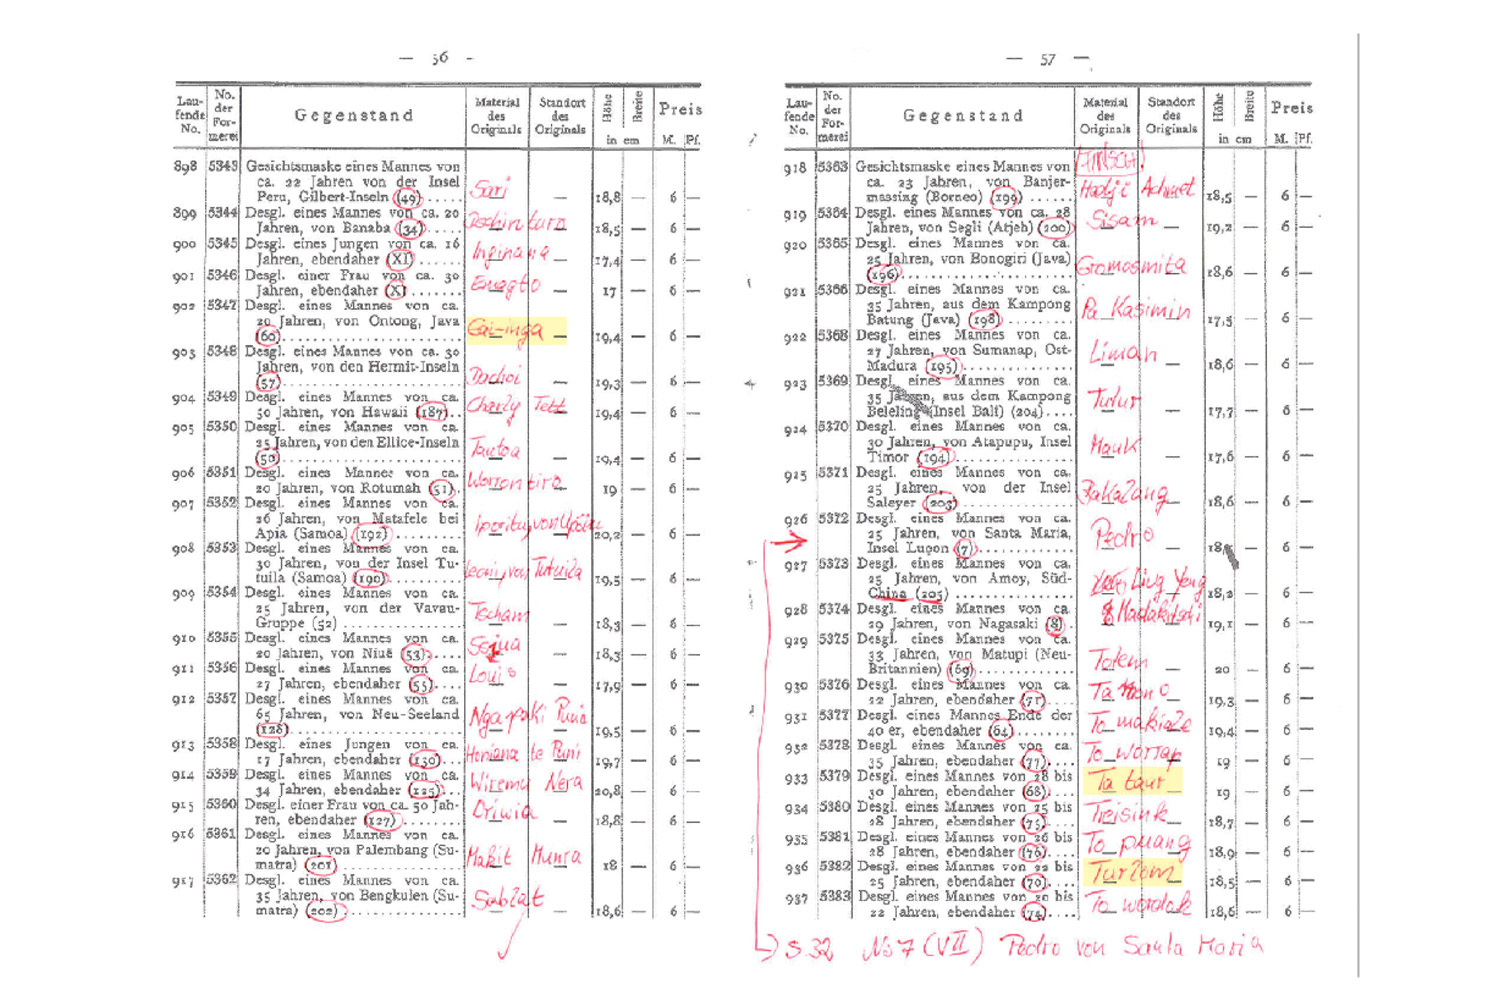 — 56 -
Lau-
fende
No.
No.
der
For-
merei
Gegenstand
Material
des
Originals
Standort
des
Originals
Höhe
Breite
in cm
Preis
M. Pf.
898 5343 Gesichtsmaske eines Mannes von
ca. 22 Jahren von der Insel Sari
Peru, Gilbert-Inseln (49) ...... — — 18,8 — 6 —
899 5344 Desgl. eines Mannes von ca. 20
Jahren, von Banaba (34) ....... — — 18,5 — 6 —
900 5345 Desgl. eines Jungen von ca. 16
Jahren, ebendaher (XI) ........ Inginana — — 17,4 — 6 —
901 5346 Desgl. einer Frau von ca. 30
Jahren, ebendaher (X) ........ — — 17 — 6 —
902 5347 Desgl. eines Mannes von ca.
20 Jahren, von Ontong, Java
(60) ........................ Gai-inga — — 19,4 — 6 —
903 5348 Desgl. eines Mannes von ca. 30
Jahren, von den Hermit-Inseln
(57) ........................ Dachoi — — 19,3 — 6 —
904 5349 Desgl. eines Mannes von ca.
50 Jahren, von Hawaii (187) .. Charly Tett — — 19,4 — 6 —
905 5350 Desgl. eines Mannes von ca.
25 Jahren, von den Ellice-Inseln
(50) ........................ Tautoa — — 19,4 — 6 —
906 5351 Desgl. eines Mannes von ca.
20 Jahren, von Rotumah (51) . — — 19 — 6 —
907 5352 Desgl. eines Mannes von ca.
26 Jahren, von Matafele bei
Apia (Samoa) (192) ........... von Upolu — — 20,2 — 6 —
908 5353 Desgl. eines Mannes von ca.
30 Jahren, von der Insel Tu-
tuila (Samoa) (190) .......... von Tutuila — — 19,5 — 6 —
909 5354 Desgl. eines Mannes von ca.
25 Jahren, von der Vavau-
Gruppe (52) ................. Tscham — — 18,3 — 6 —
910 5355 Desgl. eines Mannes von ca.
20 Jahren, von Niuē (53) ..... — — 18,3 — 6 —
911 5356 Desgl. eines Mannes von ca.
27 Jahren, ebendaher (55) .... Louis — — 17,9 — 6 —
912 5357 Desgl. eines Mannes von ca.
65 Jahren, von Neu-Seeland
(128) ....................... Ngapaki Puna — — 19,5 — 6 —
913 5358 Desgl. eines Jungen von ca.
17 Jahren, ebendaher (130) ... Honiana te Puni — — 19,7 — 6 —
914 5359 Desgl. eines Mannes von ca.
34 Jahren, ebendaher (125) ... Wiremu Nera — — 20,8 — 6 —
915 5360 Desgl. einer Frau von ca. 50 Jah-
ren, ebendaher (127) ......... — — 18,8 — 6 —
916 5361 Desgl. eines Mannes von ca.
20 Jahren, von Palembang (Su-
matra) (201) ................ Makit Munra — — 18 — 6 —
917 5362 Desgl. eines Mannes von ca.
35 Jahren, von Bengkulen (Su-
matra) (202) ................ Sablat — — 18,6 — 6 —
— 57 —
Lau-
fende
No.
No.
der
For-
merei
Gegenstand
Material
des
Originals
Standort
des
Originals
Höhe
Breite
in cm
Preis
M. Pf.
918 5363 Gesichtsmaske eines Mannes von
ca. 23 Jahren, von Banjer-
massing (Borneo) (199) ....... Hadji Achmet — — 18,5 — 6 —
919 5364 Desgl. eines Mannes von ca. 28
Jahren, von Segli (Atjeh) (200) Sisam — — 19,2 — 6 —
920 5365 Desgl. eines Mannes von ca.
25 Jahren, von Bonogiri (Java)
(196) ....................... Gromosmita — — 18,6 — 6 —
921 5366 Desgl. eines Mannes von ca.
35 Jahren, aus dem Kampong
Batung (Java) (198) .......... Pa Kasimin — — 17,5 — 6 —
922 5368 Desgl. eines Mannes von ca.
27 Jahren, von Sumanap, Ost-
Madura (195) ................ Liman — — 18,6 — 6 —
923 5369 Desgl. eines Mannes von ca.
35 Jahren, aus dem Kampong
Beleling (Insel Bali) (204) .... Tutur — — 17,7 — 6 —
924 5370 Desgl. eines Mannes von ca.
30 Jahren, von Atapupu, Insel
Timor (194) ................. Mauk — — 17,6 — 6 —
925 5371 Desgl. eines Mannes von ca.
25 Jahren, von der Insel
Saleyer (203) ................ Bakalang — — 18,6 — 6 —
926 5372 Desgl. eines Mannes von ca.
25 Jahren, von Santa Maria,
Insel Luçon (7) .............. Pedro — — — 6 —
927 5373 Desgl. eines Mannes von ca.
25 Jahren, von Amoy, Süd-
China (205) ................. Ling Yeng — — 18,2 — 6 —
928 5374 Desgl. eines Mannes von ca.
29 Jahren, von Nagasaki (8) — — 19,1 — 6 —
929 5375 Desgl. eines Mannes von ca.
33 Jahren, von Matupi (Neu-
Britannien) (69) ............. Totem — — 20 — 6 —
930 5376 Desgl. eines Mannes von ca.
22 Jahren, ebendaher (71) .... — — 19,3 — 6 —
931 5377 Desgl. eines Mannes Ende der
40 er, ebendaher (64) ........ To makiale — — 19,4 — 6 —
932 5378 Desgl. eines Mannes von ca.
35 Jahren, ebendaher (77) .... To worrap — — 19 — 6 —
933 5379 Desgl. eines Mannes von 28 bis
30 Jahren, ebendeher (68) .... Ta taur — — 19 — 6 —
934 5380 Desgl. eines Mannes von 25 bis
28 Jahren, ebendaher (75) .... Treisink — — 18,7 — 6 —
935 5381 Desgl. eines Mannes von 26 bis
28 Jahren, ebendaher (76) .... To pnang — — 18,9 — 6 —
936 5382 Desgl. eines Mannes von 22 bis
25 Jahren, ebendaher (70) .... Turlom — — 18,5 — 6 —
937 5383 Desgl. eines Mannes von 20 bis
22 Jahren, ebendaher (74) .... To wordok — — 18,6 — 6 —
S. 32 No 7 (VII) Pedro von Santa Maria